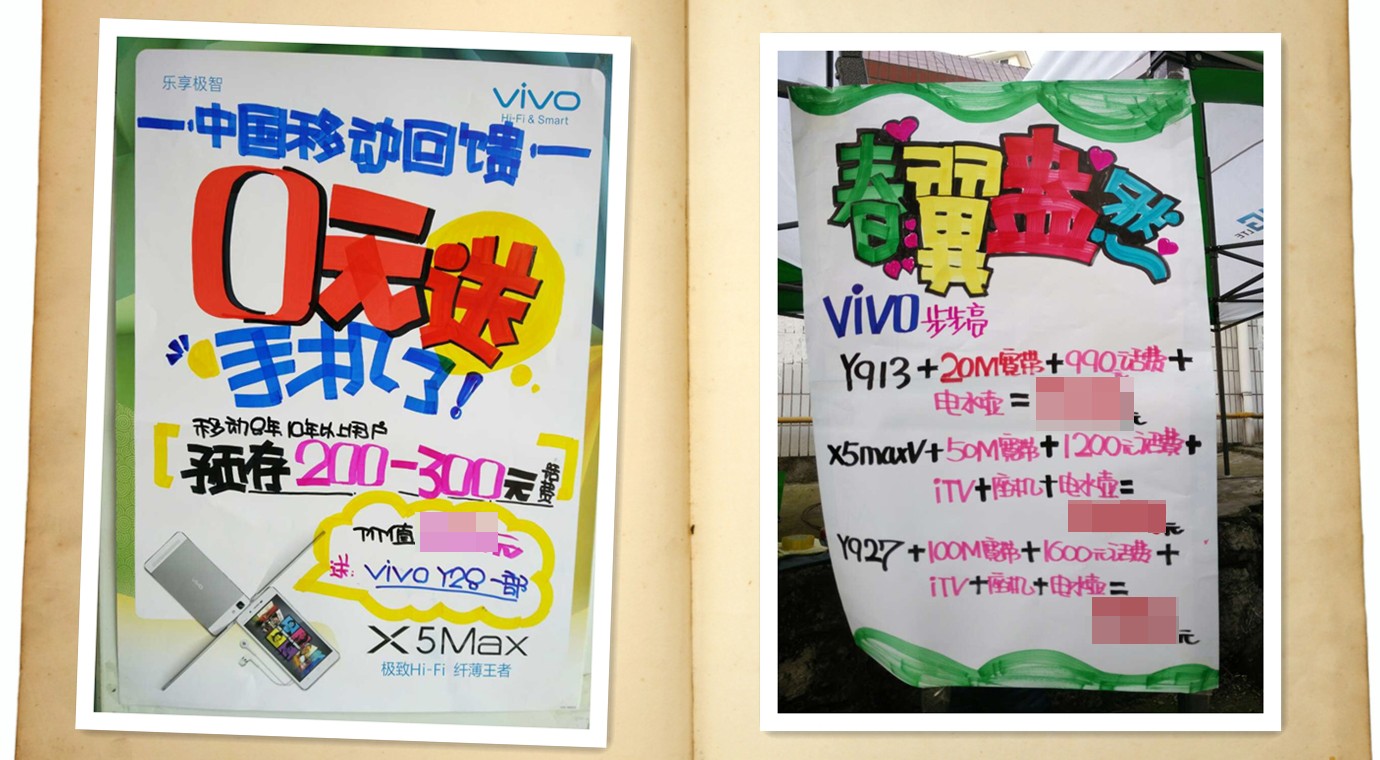 乐享极智
vivo
Hi-Fi & Smart
中国移动回馈
0元送
手机了!
移动8年10年以上用户
预存200-300元话费
价值
元
送: vivo Y28一部
X5Max
极致Hi-Fi 纤薄王者
春翼盎然
vivo步步高
Y913+20M宽带+990元话费+
电水壶=
元
x5maxV+50M宽带+1200元话费+
iTV+座机+电水壶=
元
Y927+100M宽带+1600元话费+
iTV+座机+电水壶=
元